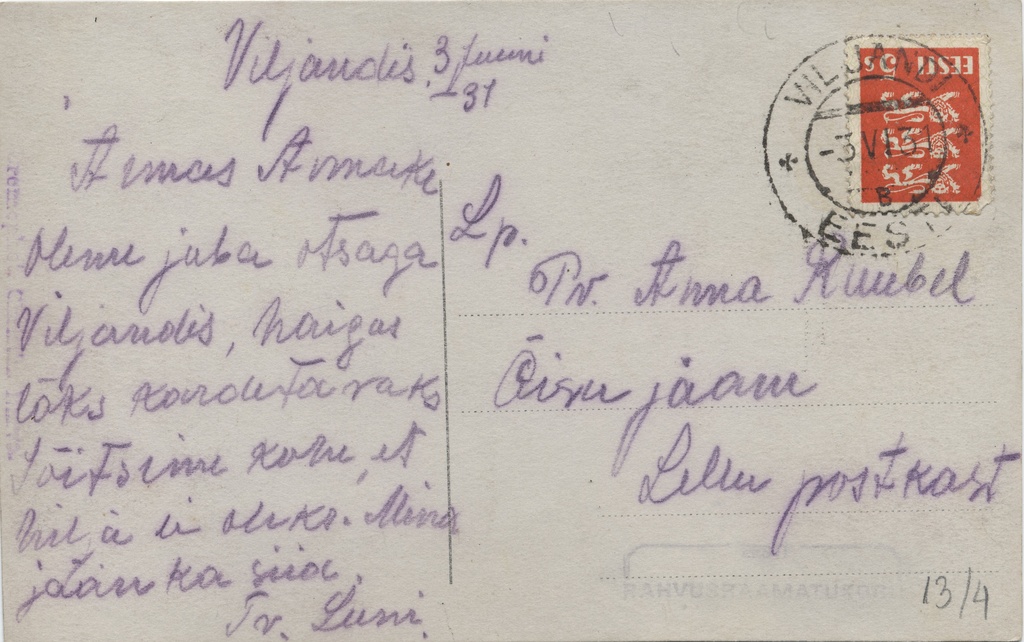 Viljandis 3 Juuni
-31
Armas Annake
Oleme juba otsaga
Viljandis, haigus
läks kardetavaks
sõitsime kohe, et
hilja ei oleks. Mina
jään ka siia.
Tv. Leeni.
Lp.
Pr. Anna Kuubel
Õisu jaam
Lellu postkast
EESTI
5 s
VILJANDI
-3 VI 31
B
EESTI
RAHVUSRAAMATUKOGU
13/4